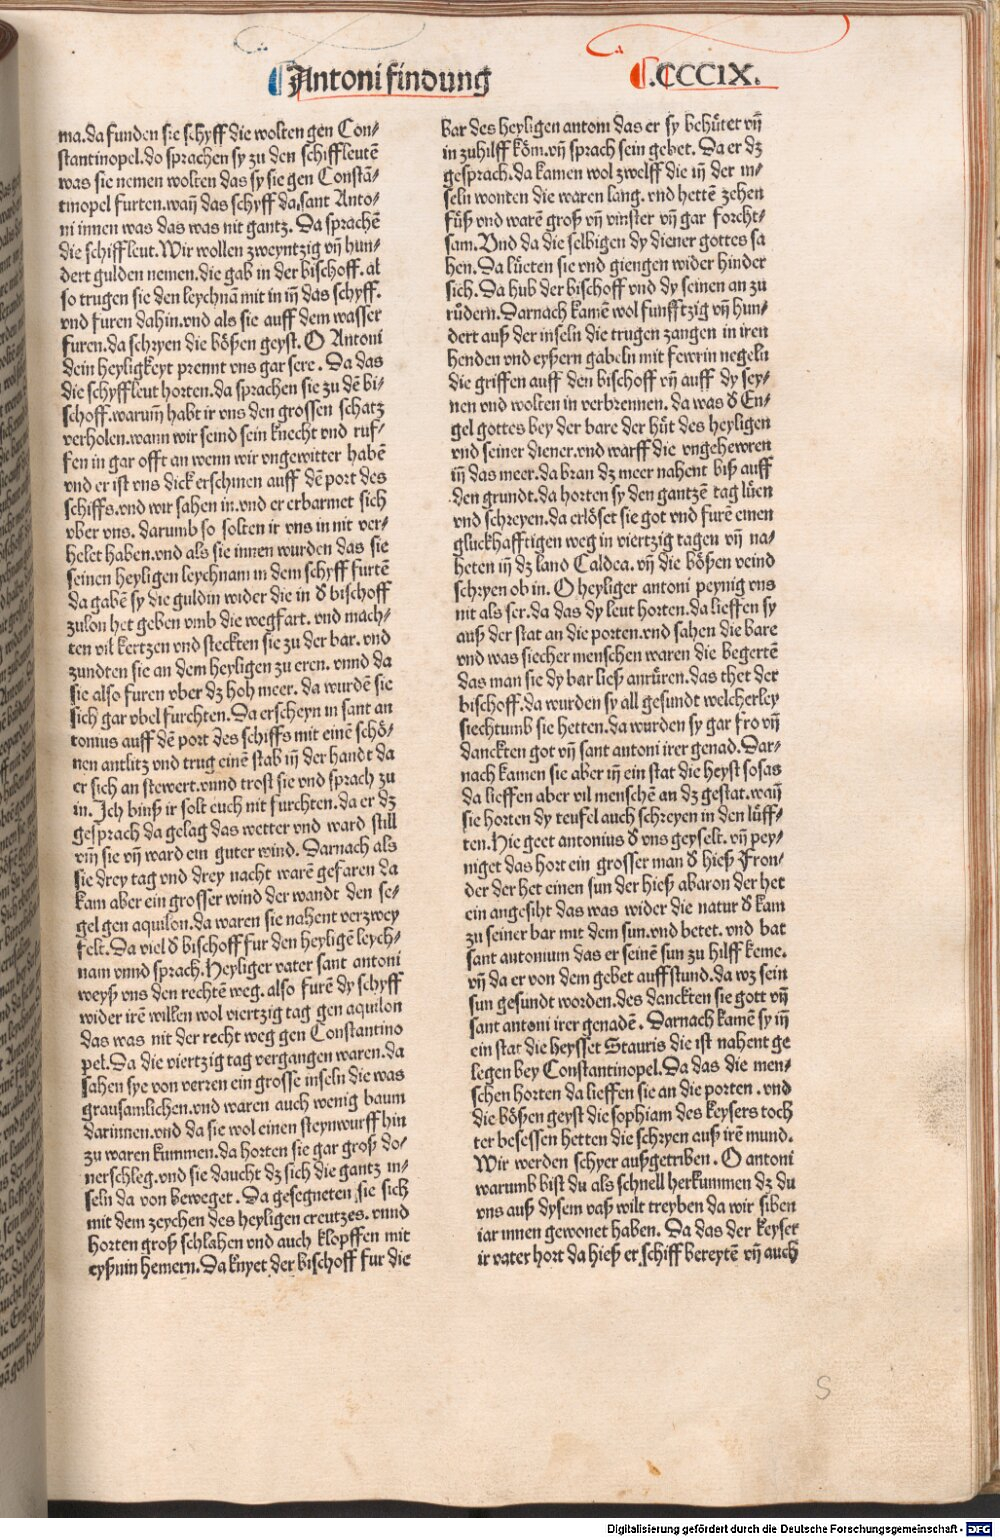 Antoni findung
.CCCIX.
ma.da funden sie schyff die wolten gen Con-
stantinopel.do sprachen sy zu den schiffleutē
was sie nemen wolten das sy sie gen Constā-
tinopel furten.wañ das schyff da,sant Anto-
ni innen was das was nit gantz. Da sprachē
die schiffleut.Wir wollen zweyntzig vñ hun-
dert gulden nemen.die gab in der bischoff.al
so trugen sie den leychnā mit in iñ das schyff.
vnd furen dahin.vnd als sie auff dem wasser
furen.da schryen die bößen geyst. O Antoni
dein heyligkeyt prennt vns gar sere. Da das
die schyffleut horten.da sprachen sie zu dē bi-
schoff.warum̄ habt ir vns den grossen schatz
verholen.wann wir seind sein knecht vnd ruf-
fen in gar offt an wenn wir vngewitter habē
vnd er ist vns dick erschinen auff dē port des
schiffs.vnd wir sahen in.vnd er erbarmet sich
vber vns. darumb so solten ir vns in nit ver-
helet haben.vnd als sie innen wurden das sie
seinen heyligen leychnam in dem schyff furtē
da gabē sy die guldin wider die in d bischoff
zulon het geben vmb die wegfart. vnd mach-
ten vil kertzen vnd steckten sie zu der bar. vnd
zundten sie an dem heyligen zu eren. vnnd da
sie also furen vber dz hoh meer. da wurdē sie
sich gar vbel furchten. Da erscheyn in sant an
tonius auff dē port des schiffs mit einē schö-
nen antlitz vnd trug einē stab iñ der handt da
er sich an stewert.vnnd trost sie vnd sprach zu
in. Ich binß ir solt euch nit furchten.da er dz
gesprach da gelag das wetter vnd ward still
vm̄ sie vñ ward ein guter wind. Darnach als
sie drey tag vnd drey nacht warē gefaren da
kam aber ein grosser wind der wandt den se-
gel gen aquilon.da waren sie nahent verzwey
felt. Da viel d bischoff fur den heyligē leych-
nam vnnd sprach. Heyliger vater sant antoni
weyß vns den rechtē weg. also furē dy schyff
wider irē willen wol viertzig tag gen aquilon
das was nit der recht weg gen Constantino
pel. Da die viertzig tag vergangen waren.da
sahen sye von verren ein grosse inseln die was
grausamlichen.vnd waren auch wenig baum
darinnen.vnd da sie wol einen steynwurff hin
zu waren kummen.da horten sie gar groß do-
nerschleg.vnd sie daucht dz sich die gantz in-
seln da von beweget. Da gesegneten sie sich
mit dem zeychen des heyligen creutzes. vnnd
horten groß schlahen vnd auch klopffen mit
eyßnin hemern. Da knyet der bischoff fur die
bar des heyligen antoni das er sy behütet vñ
in zuhilff köm.vñ sprach sein gebet. Da er dz
gesprach.da kamen wol zwelff die iñ der in-
seln wonten die waren lang. vnd hettē zehen
füß vnd warē groß vñ vinster vñ gar forcht-
sam. Vnd da die selbigen dy diener gottes sa
hen. Da lüeten sie vnd giengen wider hinder
sich. Da hub der bischoff vnd dy seinen an zu
růdern. Darnach kamē wol funfftzig vñ hun-
dert auß der inseln die trugen zangen in iren
henden vnd eyßern gabeln mit fewrin negeln
die griffen auff den bischoff vñ auff dy sey-
nen vnd wolten in verbrennen. da was d En-
gel gottes bey der bare der hüt des heyligen
vnd seiner diener.vnd warff die vngehewren
iñ das meer.da bran dz meer nahent biß auff
den grundt.da horten sy den gantzē tag lüen
vnd schreyen.da erlöset sie got vnd furē einen
gluckhafftigen weg in viertzig tagen vñ na-
heten iñ dz land Caldea. vñ die bößen veind
schryen ob in. O heyliger antoni peynig vns
nit als ser.da das dy leut horten.da lieffen sy
auß der stat an die porten.vnd sahen die bare
vnd was siecher menschen waren die begertē
das man sie dy bar ließ anrüren.das thet der
bischoff.da wurden sy all gesundt welcherley
siechtumb sie hetten.da wurden sy gar fro vñ
danckten got vñ sant antoni irer genad. Dar-
nach kamen sie aber iñ ein stat die heyst sosas
da lieffen aber vil menschē an dz gestat.wañ
sie horten dy teufel auch schreyen in den lüff-
ten. Hie geet antonius d vns geyselt. vñ pey-
niget das hort ein grosser man d hieß Fron-
der der het einen sun der hieß abaron der het
ein angesiht das was wider die natur d kam
zu seiner bar mit dem sun.vnd betet. vnd bat
sant antonium das er seinē sun zu hilff keme.
vñ da er von dem gebet auffstund.da wz sein
sun gesundt worden.des danckten sie gott vñ
sant antoni irer genadē. Darnach kamē sy iñ
ein stat die heysset Stauris die ist nahent ge
legen bey Constantinopel. Da das die men-
schen horten da lieffen sie an die porten. vnd
die bößen geyst die sophiam des keysers toch
ter besessen hetten die schryen auß irē mund.
Wir werden schyer außgetriben. O antoni
warumb bist du als schnell herkummen dz du
vns auß dysem vaß wilt treyben da wir siben
iar innen gewonet haben. Da das der keyser
ir vater hort da hieß er schiff bereytē vñ auch
S
Digitalisierung gefördert durch die Deutsche Forschungsgemeinschaft - DFG